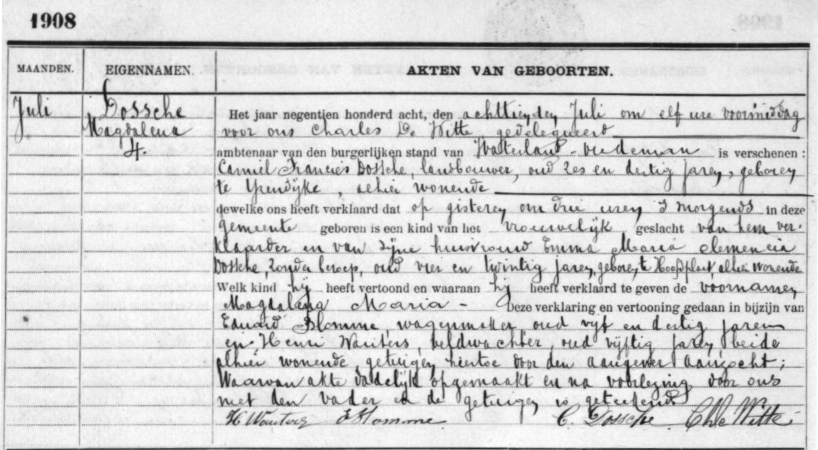 1908
MAANDEN. EIGENNAMEN. AKTEN VAN GEBOORTEN.
Juli Dossche Magdalena 4.
Het jaar negentien honderd acht, den achttienden Juli om elf ure voormiddag
voor ons Charles De Witte gedelegueerd
ambtenaar van den burgerlijken stand van Waterland-oudeman is verschenen:
Camiel Francies Dossche, landbouwer, oud zes en dertig jaren, geboren
te Yzendyke, alhier wonende
dewelke ons heeft verklaard dat op gisteren om drie uren 's morgends in deze
gemeente geboren is een kind van het vrouwelijk geslacht van hem ver-
klaarder en van zijne huisvrouw Emma Maria Clemencia
Dossche, zonder beroep, oud vier en twintig jaren, geboren te Hoofdplaat alhier wonende
Welk kind hij heeft vertoond en waaraan hij heeft verklaard te geven de voornamen
Magdalena Maria - Deze verklaring en vertooning gedaan in bijzijn van
Eduard Blomme wagenmaker oud vijf en dertig jaren
en Henri Wauters, veldwachter, oud vijftig jaren beide
alhier wonende getuigen hiertoe door den aangever aanzocht;
Waarvan akte dadelijk opgemaakt en na voorlezing door ons
met den vader en de getuigen is geteekend
H Wauters E Blomme C. Dossche Ch De Witte